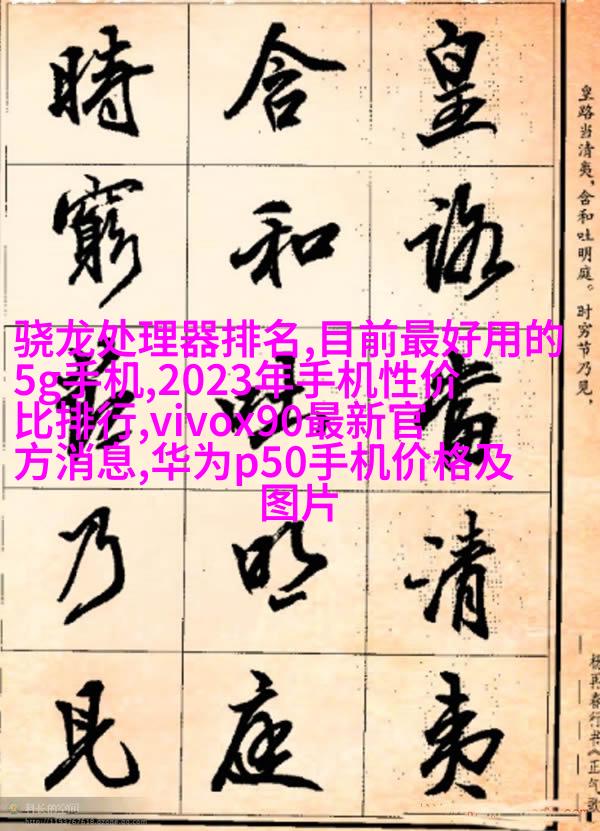 皇路當清夷
含和吐明庭
時窮節乃見
皇路当清夷,含和吐明庭。时穷节乃见,
杨再春行书《正气歌
骁龙处理器排名,目前最好用的
5g手机,2023年手机性价
比排行,vivox90最新官
方消息,华为p50手机价格及
图片
科长的空间